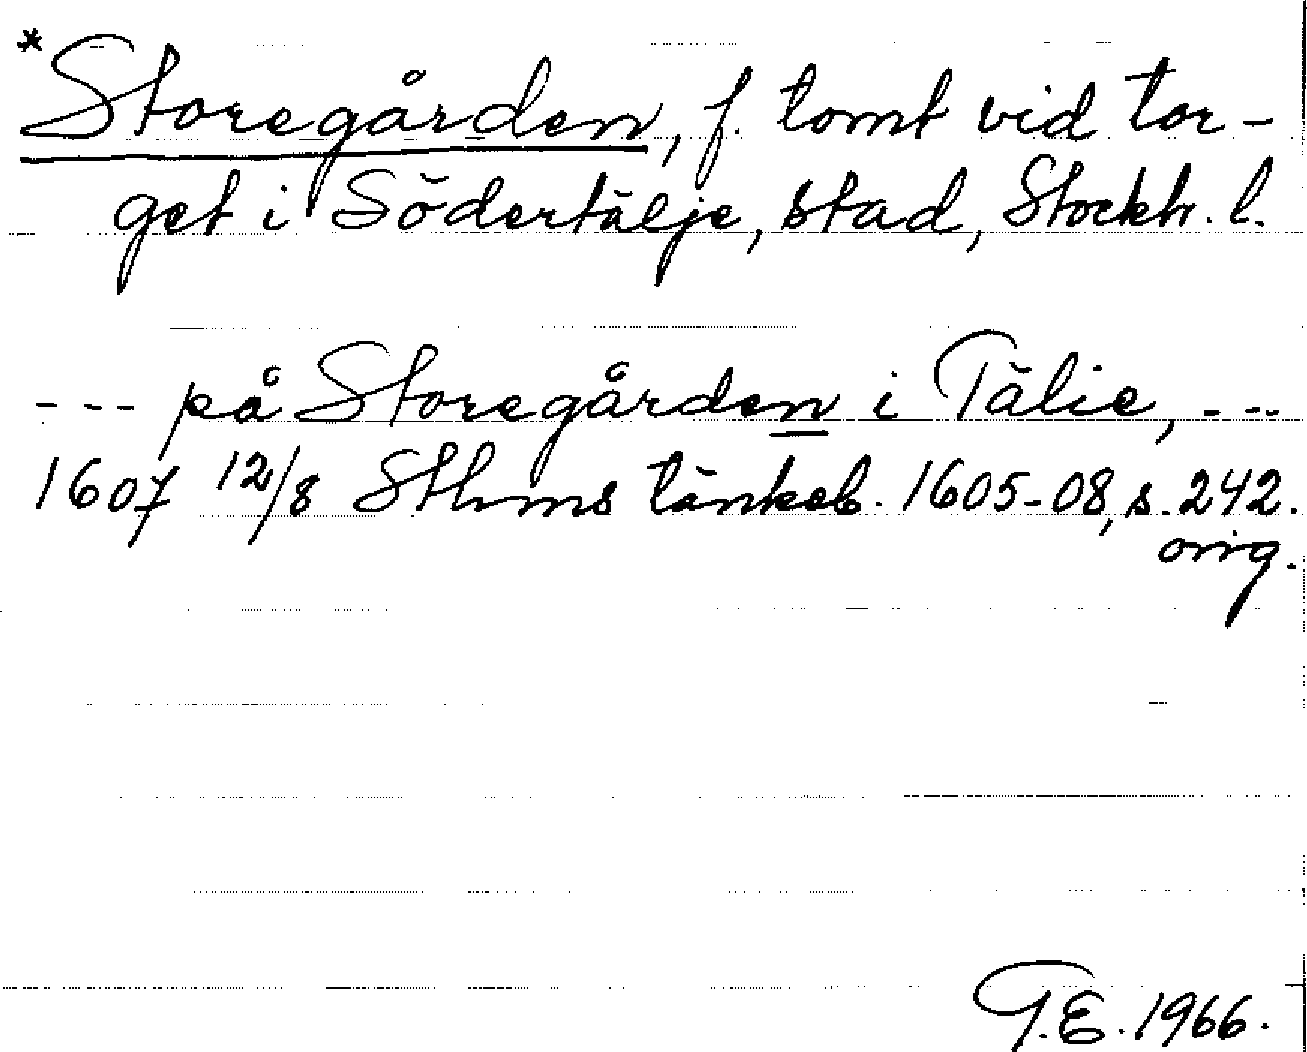 *Storegården, f. tomt vid tor-
get i Södertälje, stad, Stockh. l.
--- på Storegården i Tälie, ---
1607 12/8 Sthms tänkeb. 1605-08, s. 242.
orig.
G.E. 1966.